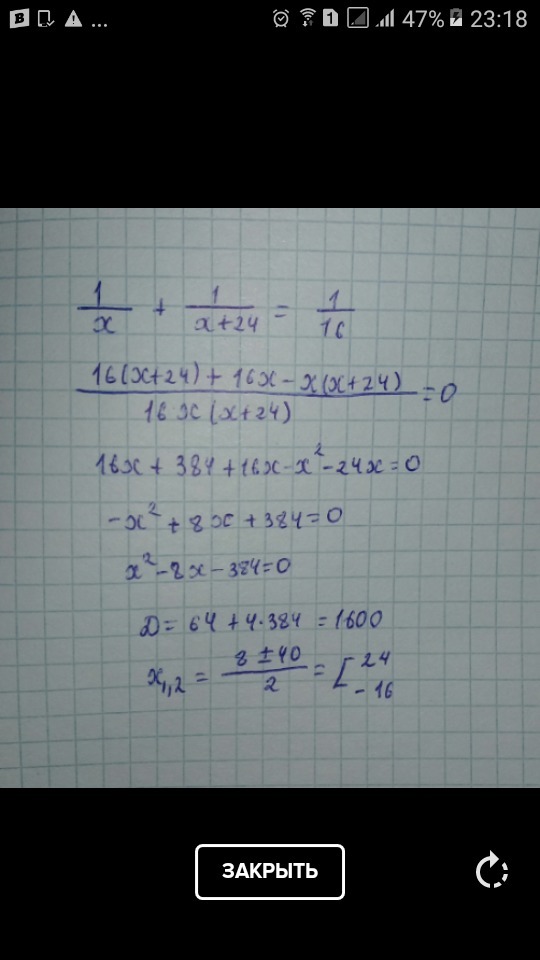 ... 1 47% 23:18
1/x + 1/(x+24) = 1/16
(16(x+24) + 16x - x(x+24))/(16x(x+24)) = 0
16x + 384 + 16x - x² - 24x = 0
-x² + 8x + 384 = 0
x² - 8x - 384 = 0
D = 64 + 4·384 = 1600
x₁,₂ = (8 ± 40)/2 = [24
-16
ЗАКРЫТЬ